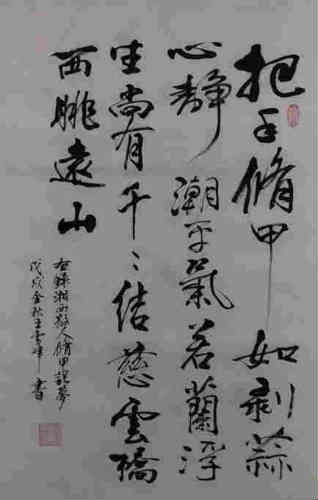 把手脩甲如剥蒜
心静潮平氣若蘭浮
生尚有千千结慈雲橋
西眺遠山
右錄湘西人脩甲記夢
戊戌金秋王峰書